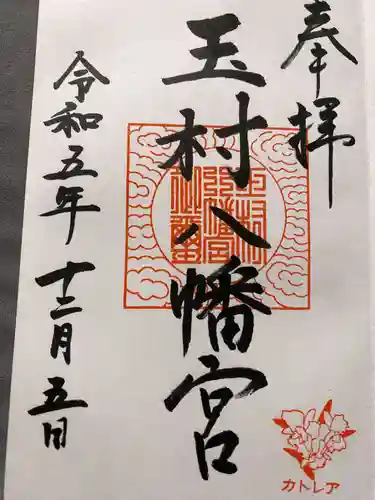 奉拝
玉村八幡宮
令和五年十二月五日
カトレア